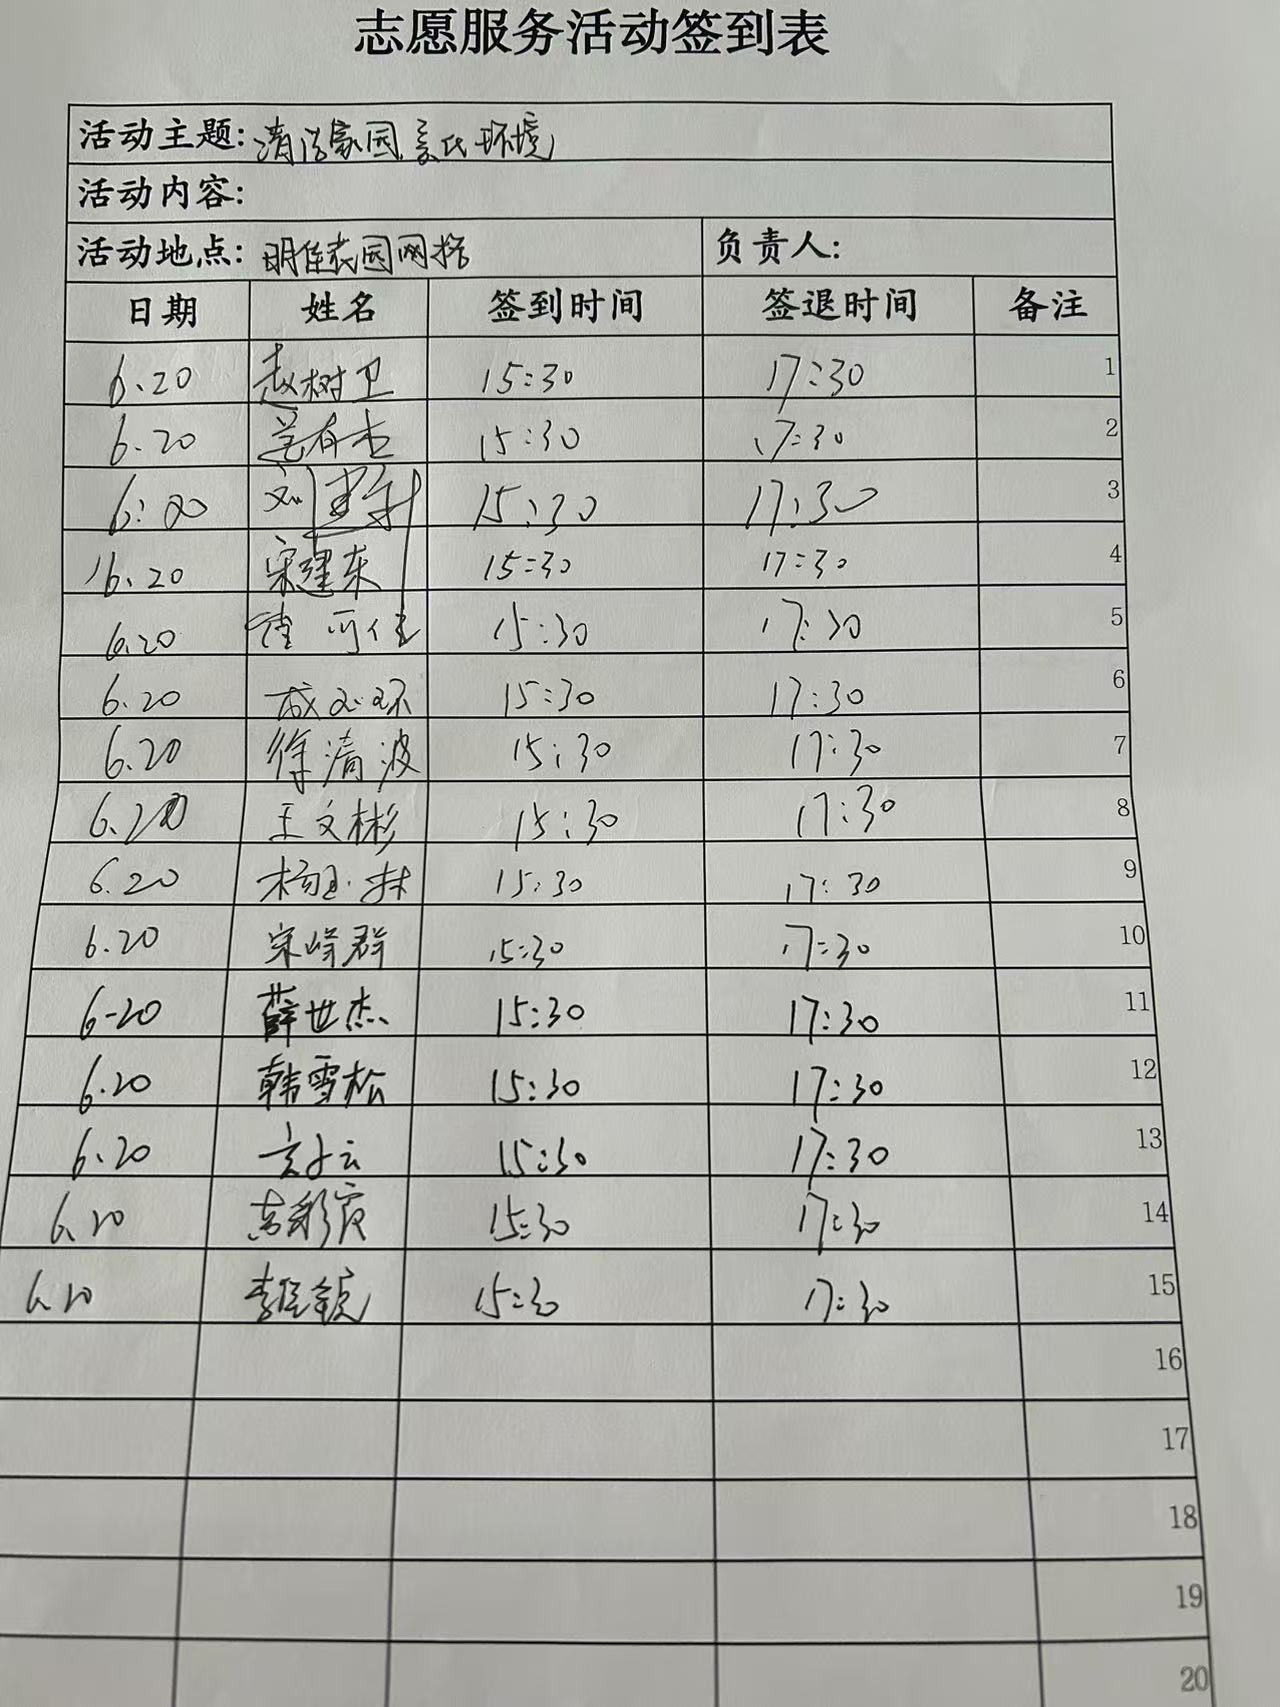 志愿服务活动签到表
活动主题: 清洁家园, 美化环境
活动内容:
活动地点: 明佳花园网格 负责人:
日期 姓名 签到时间 签退时间 备注
6.20 赵树卫 15:30 17:30 1
6.20 15:30 17:30 2
6:20 刘 15:30 17:30 3
6.20 宋建东 15:30 17:30 4
6.20 15:30 17:30 5
6.20 15:30 17:30 6
6.20 徐清波 15:30 17:30 7
6.20 王文彬 15:30 17:30 8
6.20 杨玉林 15:30 17:30 9
6.20 宋峰群 15:30 17:30 10
6-20 薛世杰 15:30 17:30 11
6.20 韩雪松 15:30 17:30 12
6.20 15:30 17:30 13
6.20 15:30 17:30 14
6.20 李 15:30 17:30 15
16
17
18
19
20